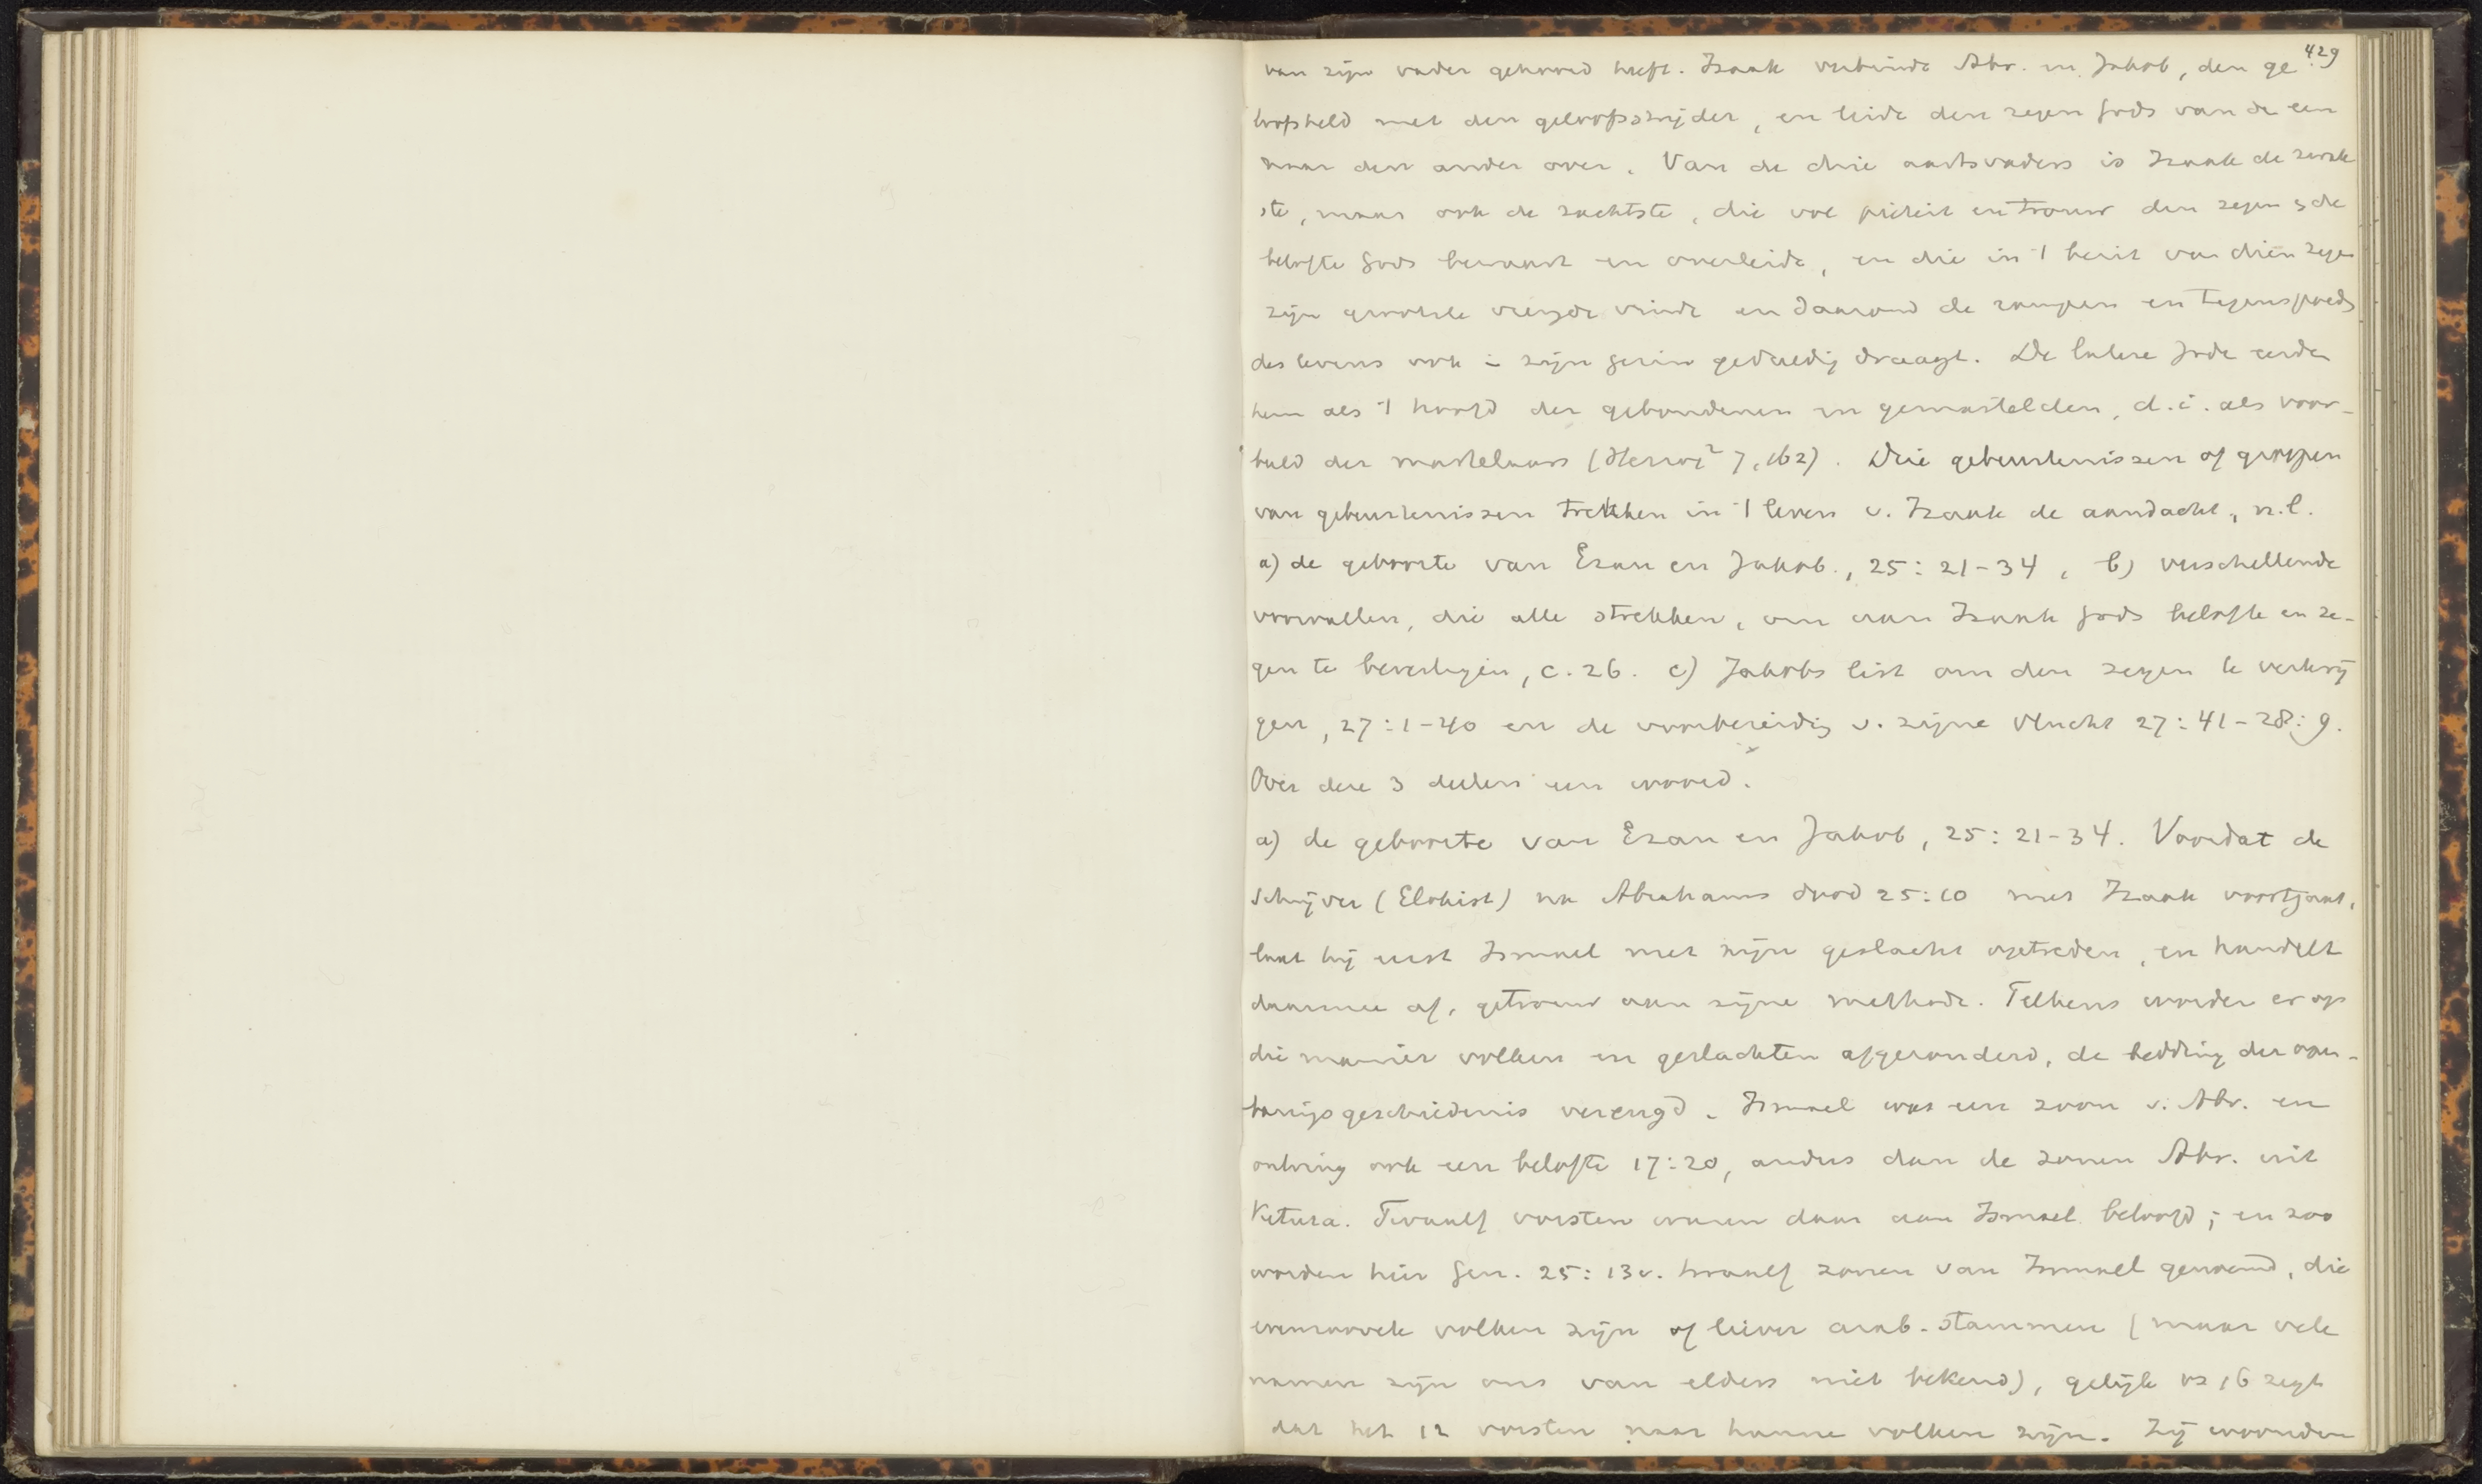 429
van zijn vader gehoord heeft. Izaak verbindt Abr. en Jakob, den ge
loofsheld met den geloofsstrijder, en leidt den zegen Gods van de een
naar den ander over. Van de drie aartsvaders is Izaak de zwak
ste, maar ook de zachtste, die vol piëteit en trouw den zegen & de
belofte Gods bewaart en overleidt, en die in 't bezit van dien zegen
zijn grootste vreugde vindt en daarom de rampen en tegenspoeds
des levens ook in zijn gezin geduldig draagt. De latere Joden eerden
hem als 't hoofd der gebondenen en gemartelden, d.i. als voor-
beeld der martelaars (Herzog² 7, 162). Drie gebeurtenissen of groepen
van gebeurtenissen trekken in 't leven v. Izaak de aandacht, n.l.
a) de geboorte van Ezau en Jakob, 25:21-34, b) verschillende
voorvallen, die alle strekken, om aan Izaak Gods belofte en ze-
gen te bevestigen, c. 26. c) Jakobs list om den zegen te verkrij
gen, 27:1-40 en de voorbereidig v. zijne vlucht 27:41-28:9.
Over deze 3 deelen een woord.
a) de geboorte van Ezau en Jakob, 25:21-34. Voordat de
Schrijver (Elohist) na Abrahams dood 25:10 met Izaak voortgaat,
laat hij eerst Ismael met zijn geslacht optreden, en handelt
daarmee af, getrouw aan zijne methode. Telkens worden er op
die manier volken en geslachten afgezonderd, de bedding der open-
baringsgeschiedenis verengd. Ismael was een zoon v. Abr. en
ontving ook een belofte 17:20, anders dan de zonen Abr. uit
Ketura. Twaalf vorsten waren daar aan Ismael beloofd; en zoo
worden hier Gen. 25:13v. twaalf zonen van Ismael genoemd, die
evenzoovele volken zijn of liever arab. stammen (maar vele
namen zijn ons van elders niet bekend), gelijk vs 16 zegt
dat het 12 vorsten naar hunne volken zijn. Zij woonden